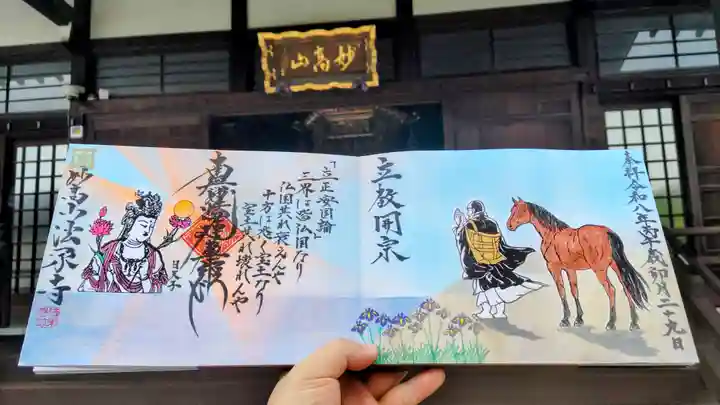 妙高山
奉拝令和八年丙午歳卯月二十九日
立教開宗
「立正安国論」
三界は皆仏国なり
仏国其れ衰えんや
十方は悉く宝土なり
宝土何ぞ壊れんや
日天子
妙高法泉寺